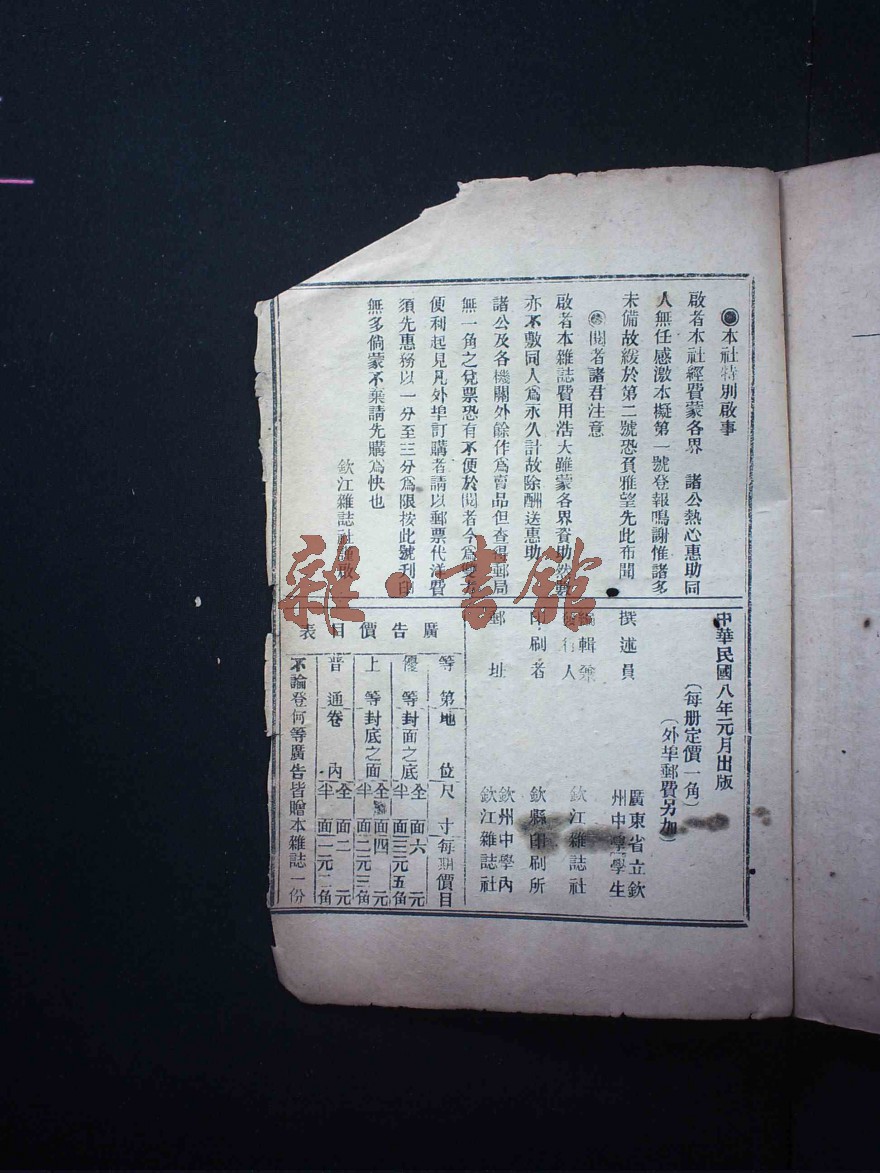 本社特別啟事
啟者本社經費蒙各界 諸公熱心惠助同
人無任感激本擬第一號登報鳴謝惟諸多
未備故緩於第二號恐負雅望先此布聞
閱者諸君注意
啟者本雜誌費用浩大雖蒙各界資助
亦不敷同人爲永久計故除酬送惠助
諸公及各機關外餘作爲賣品但查得郵局
無一角之兌票恐有不便於閱者今爲雙方
便利起見凡外埠訂購者請以郵票代洋費
須先惠務以一分至三分爲限按此號刋印
無多倘蒙不棄請先購爲快也
欽江雜誌社謹啟
中華民國八年元月出版
（每册定價一角）
（外埠郵費另加）
撰述員 廣東省立欽州中學學生
編輯兼發行人 欽江雜誌社
印刷者 欽縣印刷所
郵址 欽州中學內欽江雜誌社
廣告價目表
等第 地位 尺寸 每期價目
優等 封面之底 全面 六元 半面 三元五角
上等 封底之面 全面 四元 半面 二元三角
普通 卷內 全面 二元 半面 一元二角
不論登何等廣告皆贈本雜誌一份
雜·書館